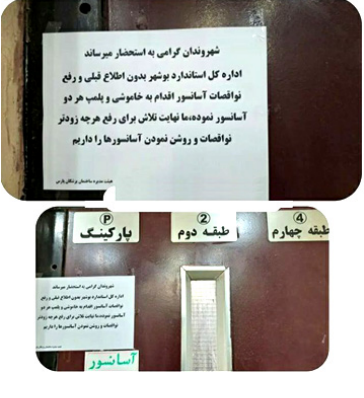 شهروندان گرامی به استحضار میرساند
اداره کل استاندارد بوشهر بدون اطلاع قبلی و رفع
نواقصات آسانسور اقدام به خاموشی و پلمپ هر دو
آسانسور نموده،ما نهایت تلاش برای رفع هرچه زودتر
نواقصات و روشن نمودن آسانسورها را داریم
هیئت مدیره ساختمان پزشکان پارس
P
پارکینگ
2
طبقه دوم
4
طبقه چهارم
شهروندان گرامی به استحضار میرساند
اداره کل استاندارد بوشهر بدون اطلاع قبلی و رفع
نواقصات آسانسور اقدام به خاموشی و پلمپ هر دو
آسانسور نموده،ما نهایت تلاش برای رفع هرچه زودتر
نواقصات و روشن نمودن آسانسورها را داریم
آسانسور